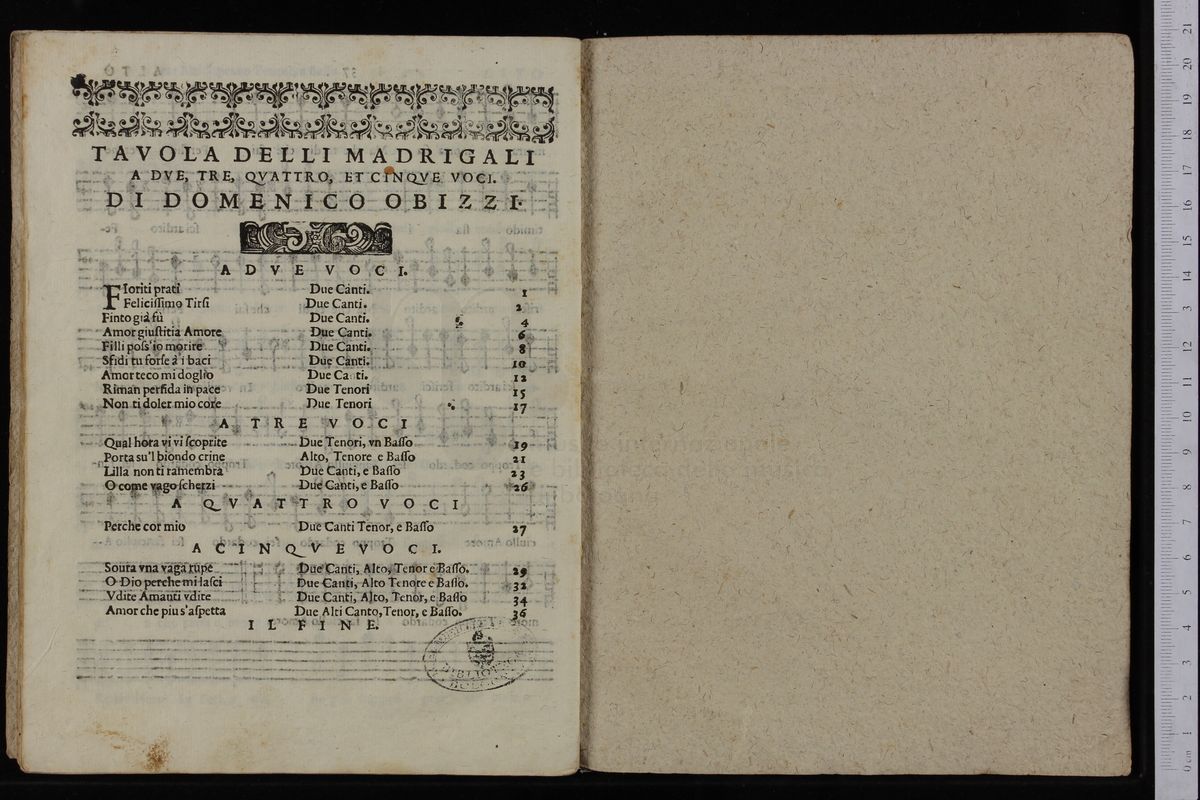 TAVOLA DELLI MADRIGALI
A DVE, TRE, QVATTRO, ET CINQVE VOCI.
DI DOMENICO OBIZZI.
A DVE VOCI.
FIoriti prati Due Canti. 1
Feliciſſimo Tirſi Due Canti. 2
Finto già fù Due Canti. 4
Amor giuſtitia Amore Due Canti. 6
Filli poſs'io morire Due Canti. 8
Sfidi tu forſe à i baci Due Canti. 10
Amor teco mi doglio Due Canti. 12
Riman perfida in pace Due Tenori 15
Non ti doler mio core Due Tenori 17
A TRE VOCI
Qual hora vi vi ſcoprite Due Tenori, vn Baſſo 19
Porta su'l biondo crine Alto, Tenore e Baſſo 21
Lilla non ti ramembra Due Canti, e Baſſo 23
O come vago ſcherzi Due Canti, e Baſſo 26
A QVATTRO VOCI
Perche cor mio Due Canti Tenor, e Baſſo 27
A CINQVE VOCI.
Soura vna vaga rupe Due Canti, Alto, Tenor e Baſſo. 29
O Dio perche mi laſci Due Canti, Alto Tenore e Baſſo. 32
Vdite Amanti vdite Due Canti, Alto, Tenor, e Baſſo 34
Amor che piu s'aſpetta Due Alti Canto, Tenor, e Baſſo. 36
IL FINE.
BIBLIOTECA
BOLOGNA
21
20
19
18
17
16
15
14
13
12
11
10
9
8
7
6
5
4
3
2
1
0 cm